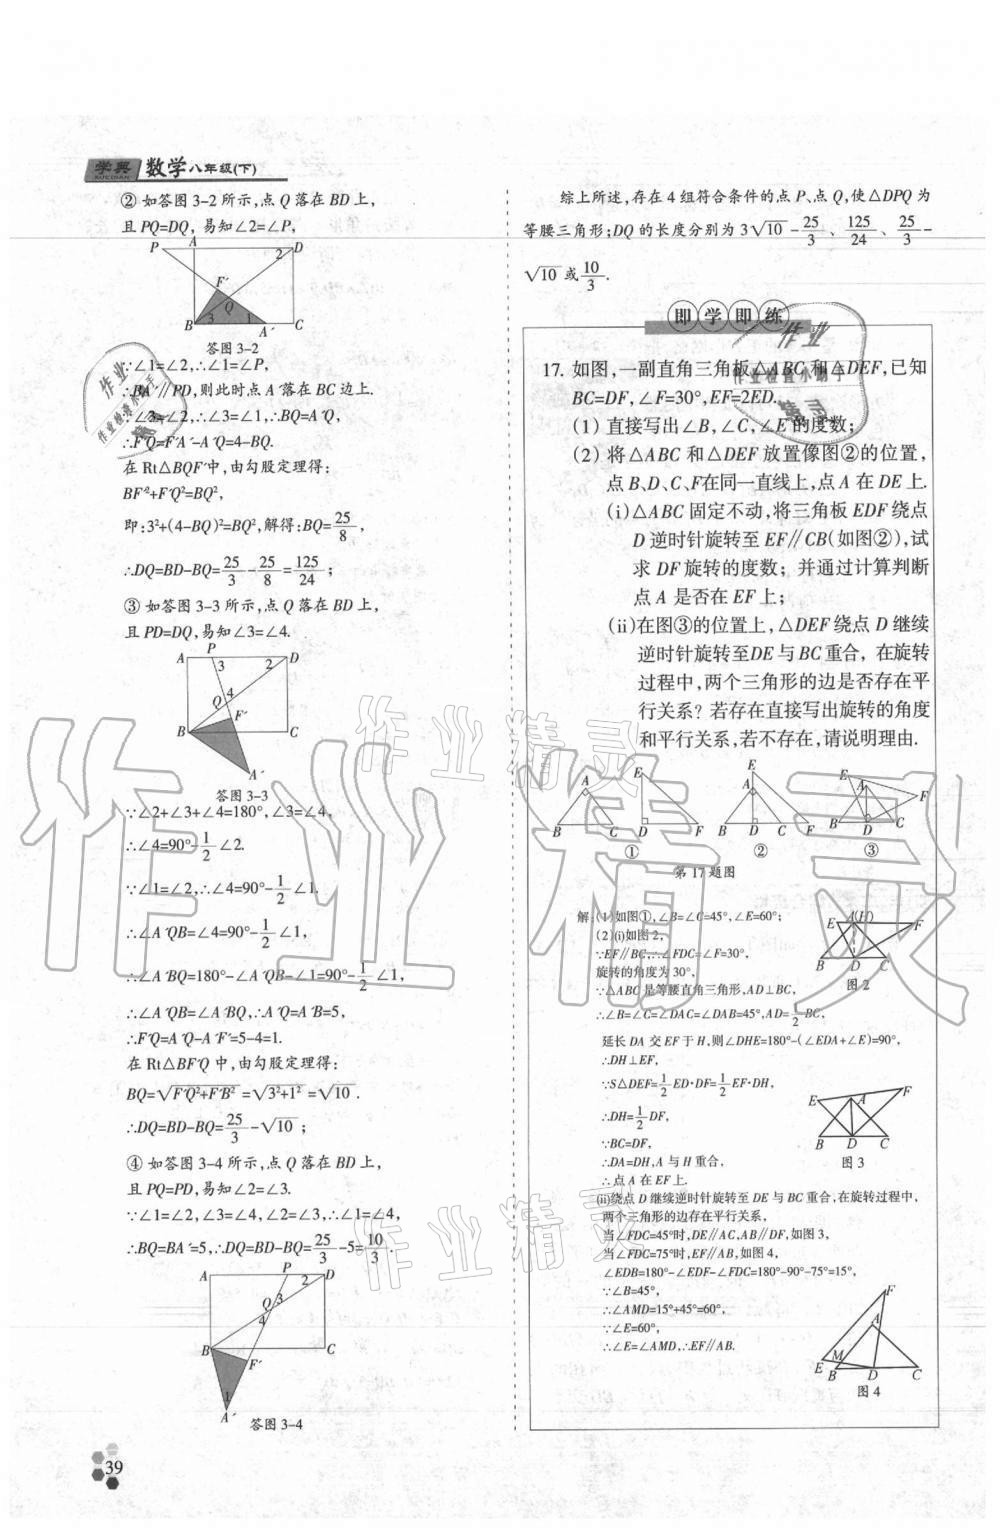 学典 数学八年级(下)
XUEDIAN
② 如答图 3-2 所示,点 Q 落在 BD 上,
且 PQ=DQ, 易知∠2=∠P,
P A D
2
F´
Q
3 1
B A´ C
答图 3-2
∵∠1=∠2,∴∠1=∠P,
∴BA´∥PD,则此时点 A´落在 BC 边上.
∵∠3=∠2,∴∠3=∠1,∴BQ=A´Q,
∴F´Q=F´A´-A´Q=4-BQ.
在 Rt△BQF´中,由勾股定理得:
BF´²+F´Q²=BQ²,
即:3²+(4-BQ)²=BQ²,解得:BQ=25/8,
∴DQ=BD-BQ=25/3-25/8=125/24;
③ 如答图 3-3 所示,点 Q 落在 BD 上,
且 PD=DQ,易知∠3=∠4.
A P D
3 2
Q 4
F´
B C
A´
答图 3-3
∵∠2+∠3+∠4=180°,∠3=∠4,
∴∠4=90°-1/2∠2.
∵∠1=∠2,∴∠4=90°-1/2∠1.
∴∠A´QB=∠4=90°-1/2∠1,
∴∠A´BQ=180°-∠A´QB-∠1=90°-1/2∠1,
∴∠A´QB=∠A´BQ,∴A´Q=A´B=5,
∴F´Q=A´Q-A´F´=5-4=1.
在 Rt△BF´Q 中,由勾股定理得:
BQ=√F´Q²+F´B²=√3²+1²=√10.
∴DQ=BD-BQ=25/3-√10;
④ 如答图 3-4 所示,点 Q 落在 BD 上,
且 PQ=PD,易知∠2=∠3.
∵∠1=∠2,∠3=∠4,∠2=∠3,∴∠1=∠4,
∴BQ=BA´=5,∴DQ=BD-BQ=25/3-5=10/3.
A P D
2
Q 3
4
B C
F´
1
A´
答图 3-4
39
综上所述,存在 4 组符合条件的点 P、点 Q,使△DPQ 为
等腰三角形;DQ 的长度分别为 3√10-25/3、125/24、25/3-
√10或10/3.
即学即练
17. 如图,一副直角三角板△ABC 和△DEF,已知
BC=DF,∠F=30°,EF=2ED.
(1) 直接写出∠B,∠C,∠E 的度数;
(2) 将△ABC 和△DEF 放置像图②的位置,
点 B、D、C、F 在同一直线上,点 A 在 DE 上.
(i)△ABC 固定不动,将三角板 EDF 绕点
D 逆时针旋转至 EF∥CB(如图②),试
求 DF 旋转的度数; 并通过计算判断
点 A 是否在 EF 上;
(ii)在图③的位置上,△DEF 绕点 D 继续
逆时针旋转至DE 与 BC 重合, 在旋转
过程中,两个三角形的边是否存在平
行关系? 若存在直接写出旋转的角度
和平行关系,若不存在,请说明理由.
A B C
E D F
①
E A B D C F
②
E A F B D C
③
第 17 题图
解:(1)如图①,∠B=∠C=45°,∠E=60°;
(2)(i)如图 2,
∵EF∥BC,∴∠FDC=∠F=30°,
旋转的角度为 30°,
∵△ABC 是等腰直角三角形,AD⊥BC,
∴∠B=∠C=∠DAC=∠DAB=45°,AD=1/2BC,
延长 DA 交 EF 于 H,则∠DHE=180°-(∠EDA+∠E)=90°,
∴DH⊥EF,
∵S△DEF=1/2ED·DF=1/2EF·DH,
∴DH=1/2DF,
∵BC=DF,
∴DA=DH,A 与 H 重合,
∴点 A 在 EF 上.
(ii)绕点 D 继续逆时针旋转至 DE 与 BC 重合,在旋转过程中,
两个三角形的边存在平行关系,
当∠FDC=45°时,DE∥AC,AB∥DF,如图 3,
当∠FDC=75°时,EF∥AB,如图 4,
∠EDB=180°-∠EDF-∠FDC=180°-90°-75°=15°,
∵∠B=45°,
∴∠AMD=15°+45°=60°,
∵∠E=60°,
∴∠E=∠AMD,∴EF∥AB.
E A(H) F
B D C
图 2
E A F
B D C
图 3
F
A
M
E B D C
图 4
作业精灵
作业精灵
作业精灵
作业
作业检查小助手
精灵
作业
作业检查小助手
精灵